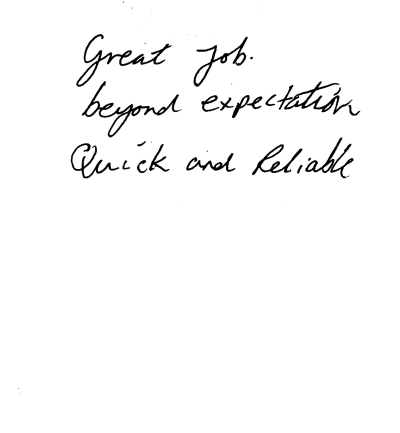 Great Job.
beyond expectation
Quick and Reliable